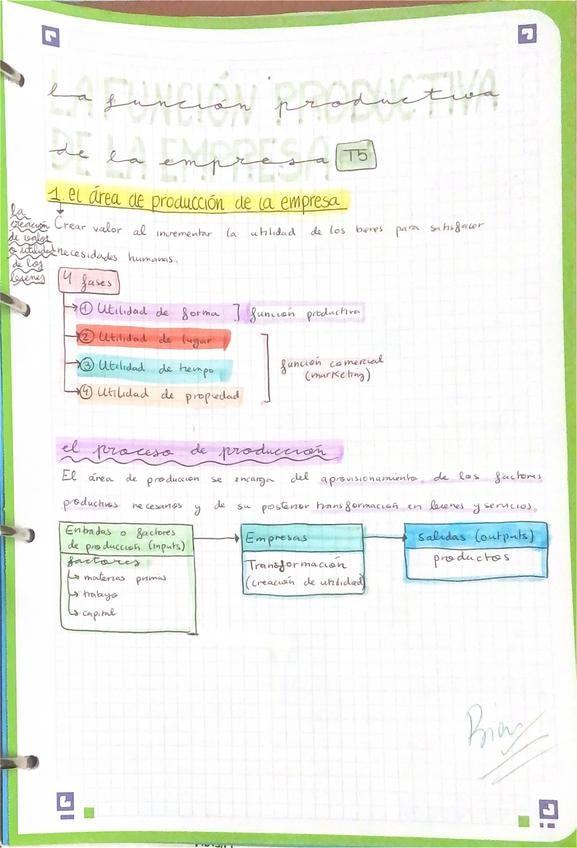 LA FUNCIÓN PRODUCTIVA
la función productiva
DE LA EMPRESA
de la empresa T5
1. el área de producción de la empresa
la
creación
de
o utilidad
de los
bienes
Crear valor al incrementar la utilidad de los bienes para satisfacer
necesidades humanas.
4 fases
① Utilidad de forma ] función productiva
② Utilidad de lugar
③ Utilidad de tiempo
④ Utilidad de propiedad
función comercial
(marketing)
el proceso de producción
El área de producción se encarga del aprovisionamiento de los factores
productivos necesarios y de su posterior transformación en bienes y servicios.
Entradas o factores
de producción (inputs)
factores
↳ materias primas
↳ trabajo
↳ capital
Empresas
Transformación
(creación de utilidad)
Salidas (outputs)
productos
Bien